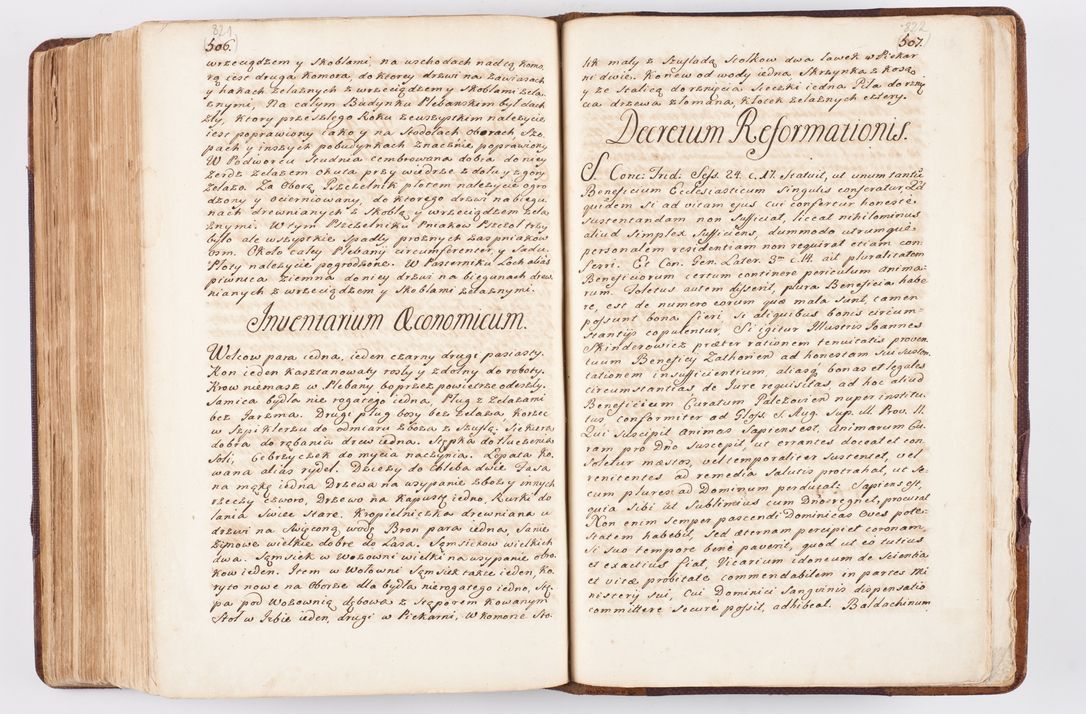 821
506.
wrzeciądzem y skoblami, na wschodach nad tą komo,
rą iest druga Komora, do ktorey drzwi na zawiasach
y hakach żelaznych z wrzeciądzem y Skoblami żela,
znymi, Na całym Budynku Plebanskim był dach
zły, ktory przeszłego Roku ze wszystkim nalezycie
iest poprawiony iako y na Stodołach oborach, Szo,
pach y inszych pobudynkach znacznie poprawiony
W Podworcu Studnia cembrowana dobra do niey
żerdz żelazem okuta przy wiedrze z dołu y z gory
żelazo. Za Oborą Pszczelnik płotem nalezycie ogro
dzony y ocierniowany, do ktorego drzwi na biegu,
nach drewnianych z Skoblą y wrzeciądzem żela,
znymi. W tym Pszczelniku Pniakow Pszczoł trzy
było ale wszystkie spadły proznych zas pniakow
osm. Około całey Plebanÿ circumferenter, y Sadu.
Płoty nalezycie pogrodzone. W Pasterniku Loch alias
piwnica ziemna do niey drzwi na biegunach drew,
nianych z wrzeciądzem y Skoblami żelaznymi.
Inventarium Œconomicum.
Wołcow para iedna, ieden czarny drugi pasiasty.
Kon ieden Kasztanowaty rosły y zdolny do roboty.
Krow niemasz w Plebany bo przez powietrze odeszły.
Samica bydła nie rogatego iedna, Pług z Żelazami
bez Jarzma. Drugi pług bosy bez Żelaza Korzec
w Szpiklerzu do odmiaru zboza z Szuflą. Siekiera
dobra do rąbania drew iedna. Stępka do tłuczenia
Soli, Cebrzyczek do mycia naczynia. Łopata Ko,
wana alias rydel. Dzieży do chleba dwie Fasa
na mąkę iedna Drzewa na wsypanie zboży innych
rzeczy czworo, Drzewo na Kapustę iedno, Rurki do
lania Swiec stare. Kropielniczka drewniana u
drzwi na święconą wodę Bron para iedna, Sanie
zimowe wielkie dobre do Lasa. Sąmsiekow wielkich
dwa. Sąmsiek w Wozowni wielki na wsypanie obro,
kow ieden. Item w Wołowni Sąmsiek także ieden, Ko,
ryto nowe na Oborze dla bydła nierogatego iedno, Stę,
pa pod Wozownią dębowa z Stęporem Kowanym
Stoł w Izbie ieden, drugi w Piekarni, W komorze Sto-
822
507.
lik mały z Szufladą Stołkow dwa ławek w Piekar
ni dwie. Konew od wody iedna Skrzynka z Kosą,
y ze Stalicą do rznięcia Sieczki iedna Piła do rznię
cia drzewa złomana, Kłotek żelaznych cztery.
Decretum Reformationis.
S. Conc: Trid. Sess. 24. c. 17. statuit, ut unum tantū
Beneficium Ecclesiasticum singulis conferatur, Qd
quidem si ad vitam ejus cui confertur honeste
sustentandam non sufficiat, liceat nihilominus
aliud Simplex sufficiens, dummodo utrumquè
personalem residentiam non requirat etiam con,
ferri. Et Con. Gen. Later. 3m c. 14. ait pluralitatem
Beneficiorum certum continere periculum anima,
rum. Toletus autem dissent, plura Beneficia habe
re, est de numero eorum quæ mala sunt, tamen
possunt bona fieri si aliquibus bonis circum-
stantÿs copulentur, Si igitur Illustris Joannes
Skinderowicz præter rationem tenuitatis proven,
tuum Beneficÿ Zathorien ad honestam sui susten,
tationem insufficientium, aliasq bonas et legales
circumstantias de Jure requisitas, ad hoc aliud
Beneficium Curatum Palczovien nuper institu,
tus conformiter ad Gloss. S. Aug. Sup. ill. Prov. 11.
Qui suscipit animas sapiens est, animarum Cu,
ram pro Dno suscepit, ut errantes doceat et con
soletur mæstos, vel temporaliter sustentet, vel
renitentes ad remedia salutis protrahat, ut se,
cum plures ad Dominum perducat: Sapiens est,
quia sibi ut Sublimius cum Dno regnet, procurat
Non enim semper pascendi Dominicas Oves pote-
statem habebit, sed æternam percipiet coronam,
si suo tempore benè paverit, quod ut eo tutius
et exactius fiat, Vicarium idoneum de scientia
et vitæ probitate commendabilem in partes Mi
nisterÿ sui, cui Dominici Sanguinis dispensatio
committere securè possit, adhibeat. Baldachinum